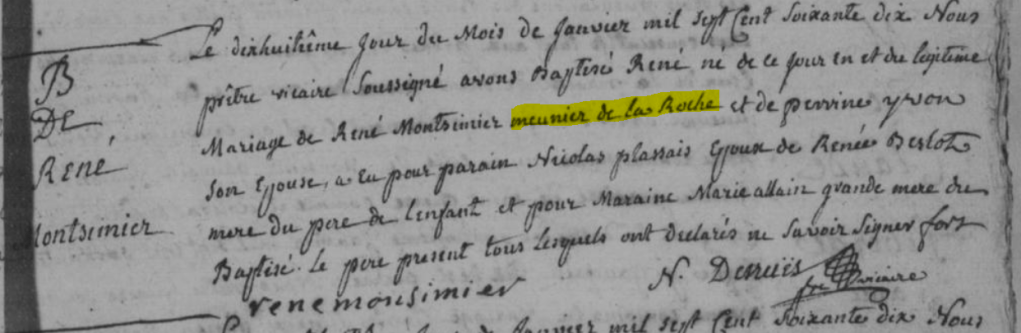 Le dixhuitième Jour du Mois de Janvier mil sept Cent Soixante dix Nous
prêtre vicaire Soussigné avons Baptisé René né de ce jour en et du legitime
Mariage de René Montsimier meunier de la Roche et de perrine yvon
Son Epouse, a Eu pour parain Nicolas plassais Epoux de Renée Beslot
mere du pere de l'enfant et pour Maraine Marie allain grande mere du
Baptisé. Le pere present tous lesquels ont declarés ne Savoir Signer fort
rene monsimier N. Denuïs
vicaire
B
DE
René
Montsimier
Janvier mil sept Cent Soixante dix Nous